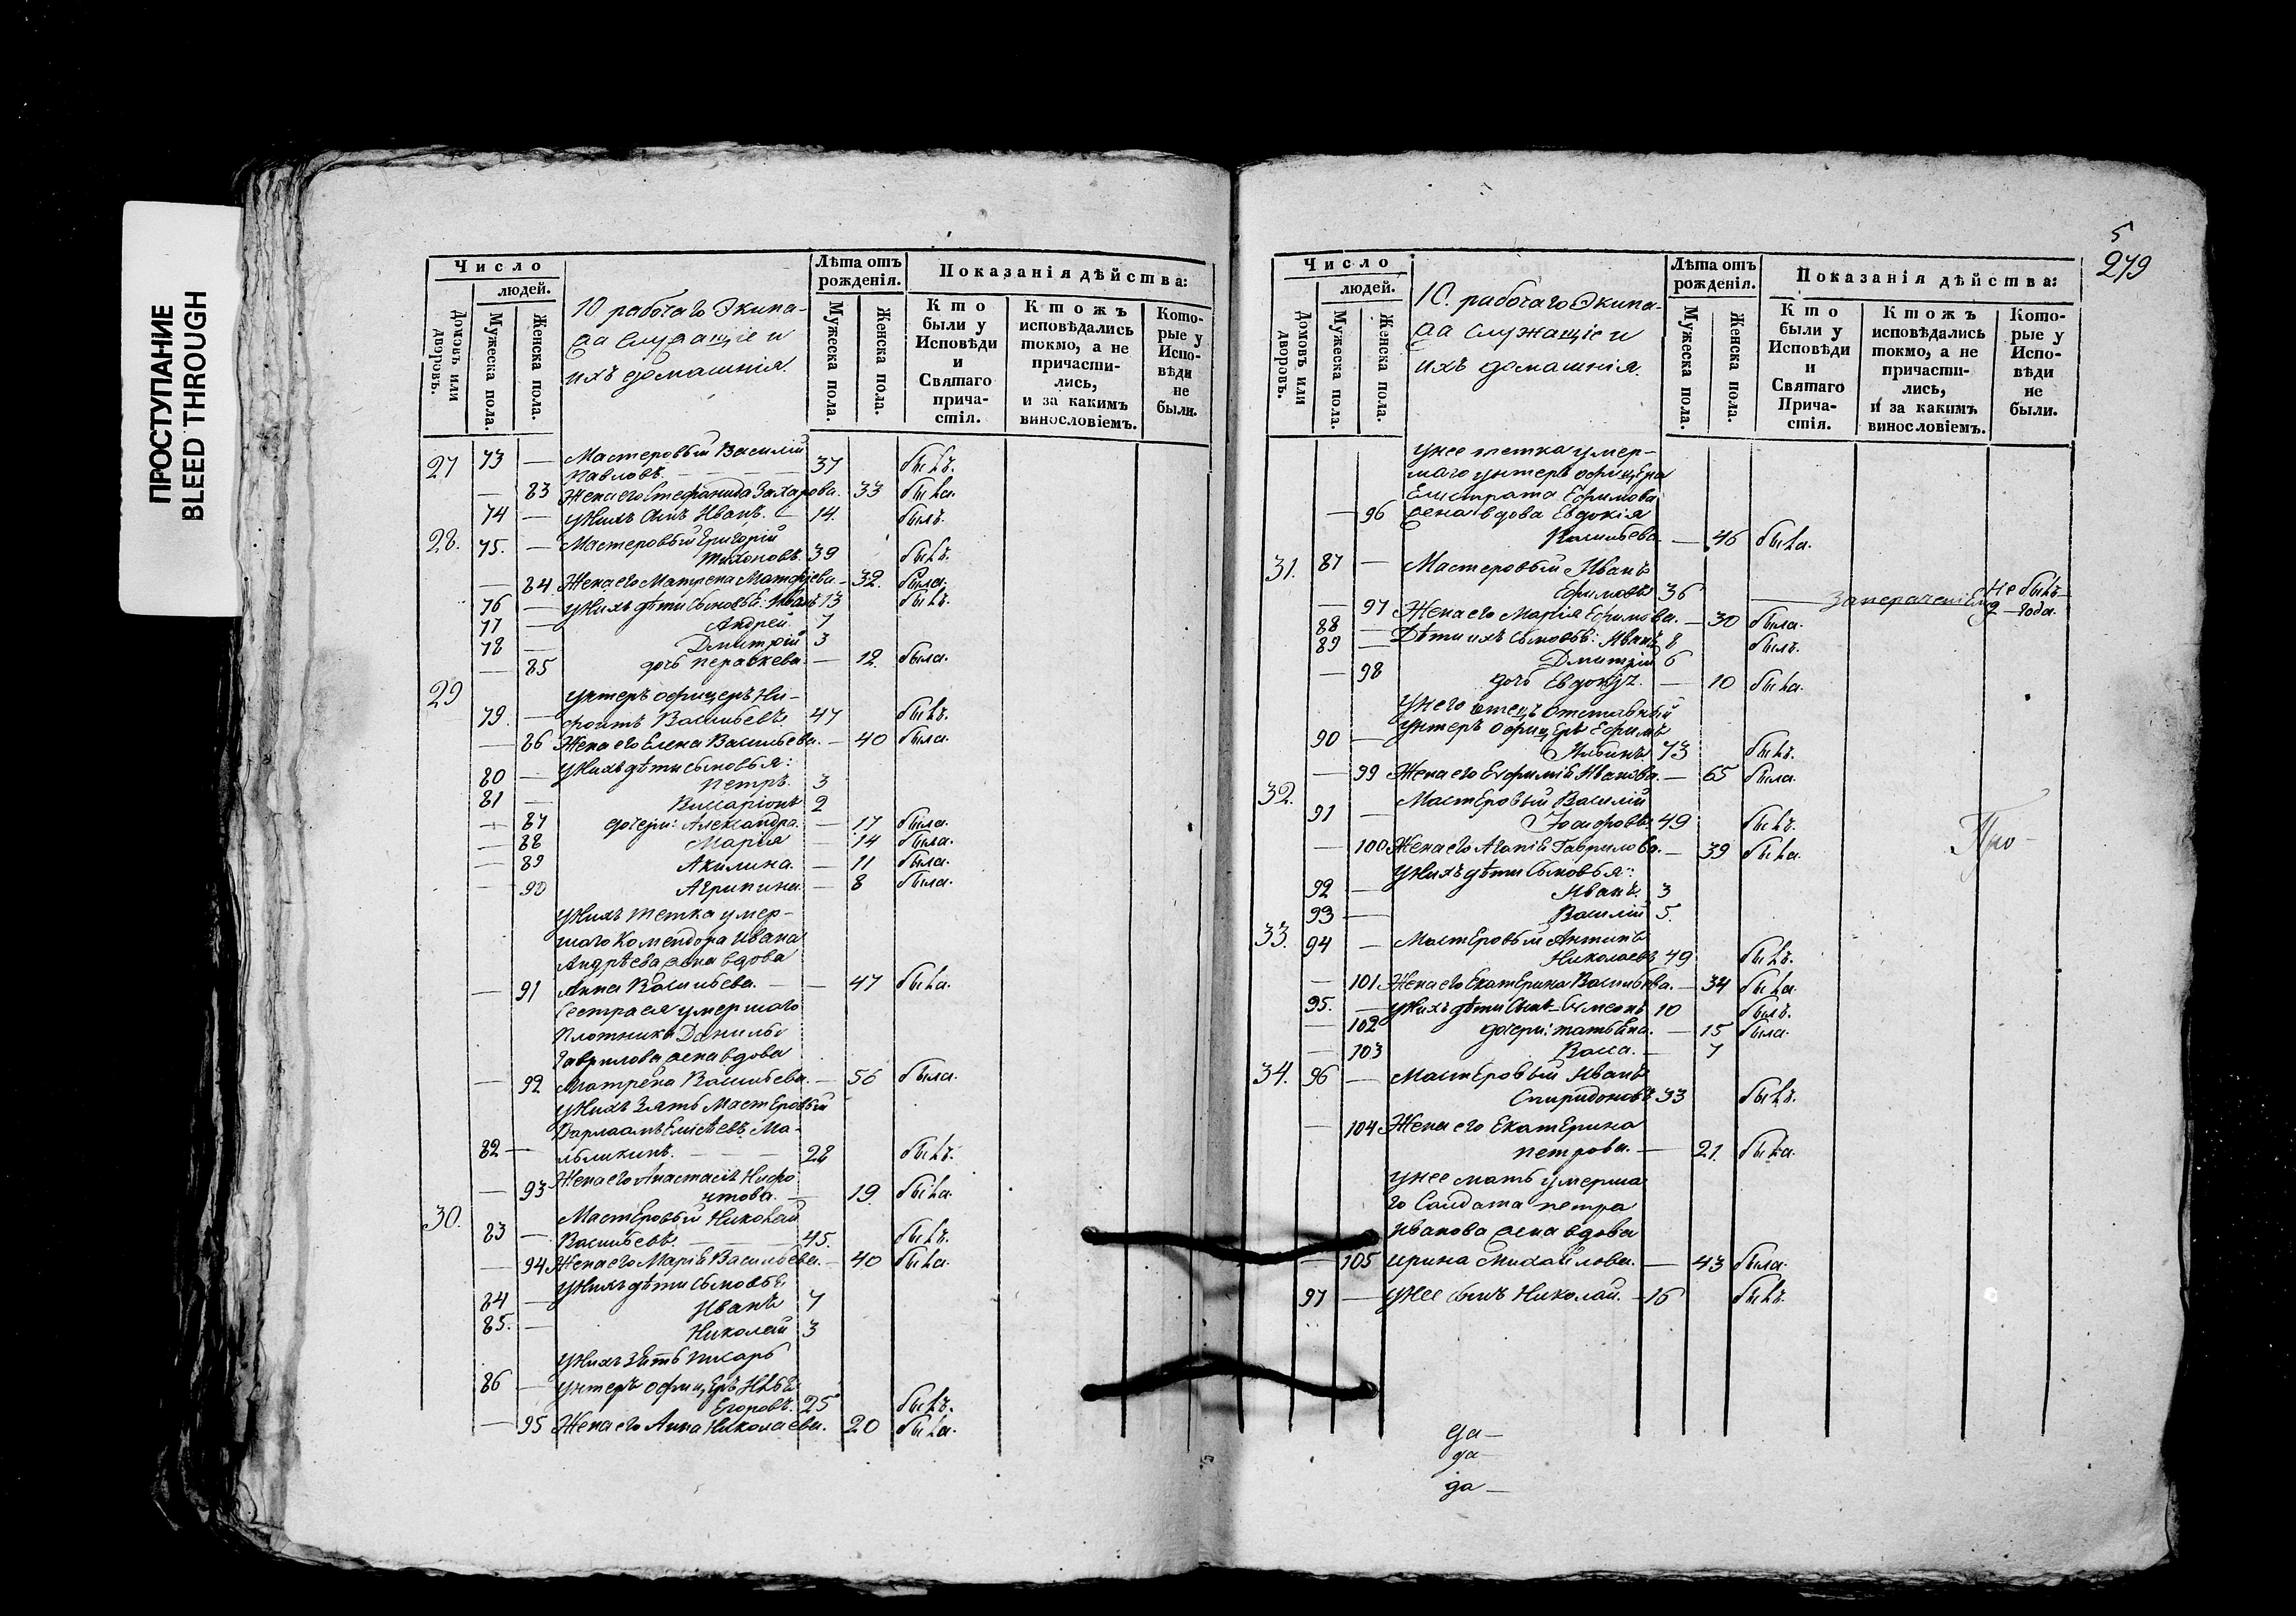 ПРОСТУПАНИЕ
BLEED THROUGH
Число
людей.
Домовъ или дворовъ.
Мужеска пола.
Женска пола.
10 рабочаго Экипа-
жа служащіе и
ихъ домашнія.
Лѣта отъ рожденія.
Мужеска пола.
Женска пола.
Показанія дѣйства:
Кто были у Исповѣди и Святаго причастія.
Ктожъ исповѣдались токмо, а не причастились, и за какимъ винословіемъ.
Которые у Исповѣди не были.
27 73 — Мастеровый Василій
Павловъ. — 37 былъ.
— 83 Жена его Стефанида Захарова. 33 была.
74 — У нихъ сынъ Иванъ. — 14. былъ.
28. 75. — Мастеровый Григорій
Тихоновъ. 39 былъ.
— 84 Жена его Матрена Матфѣева. — 32. была.
76 — У нихъ дѣти сыновья: Иванъ 13 былъ.
77 — Андрей. 7
78 — Дмитрій 3
— 85 дочь Пераскева. — 12. была.
29 унтеръ офицеръ Ни-
79. — фонтъ Васильевъ 47 былъ.
— 86 Жена его Елена Васильева. — 40 была.
У нихъ дѣти сыновья:
80 — Петръ. 3
81 — Виссаріонъ 2
— 87 дочери: Александра. — 17 была.
— 88 Марія — 14 была.
— 89 Акилина. — 11 была.
— 90 Агрипина. — 8 была.
У нихъ тетка умер-
шаго Комендора Ивана
Андрѣева жена вдова
— 91 Анна Васильева. — 47 была.
Сестра ея умершаго
Плотника Данилы
Гаврилова жена вдова
— 92 Матрена Васильева. — 56 была.
У нихъ зять Мастеровый
Варлаамъ Елисѣевъ Ма-
82 — 28 былъ.
— 93 Жена его Анастасія Нифо
нтова. — 19. была.
30. Мастеровый Николай
83 — Васильевъ. — 45. былъ.
— 94 Жена его Марія Васильева. — 40 была.
У нихъ дѣти сыновья
84 — Иванъ 7
85. — Николай 3
У нихъ зять писарь
86 — унтеръ офицеръ
Егоровъ. 25 былъ.
— 95 Жена его Анна Николаева. 20 была.
5
279
Число
людей.
Домовъ или дворовъ.
Мужеска пола.
Женска пола.
10. рабочаго Экипа-
жа служащіе и
ихъ домашнія.
Лѣта отъ рожденія.
Мужеска пола.
Женска пола.
Показанія дѣйства:
Кто были у Исповѣди и Святаго Причастія.
Ктожъ исповѣдались токмо, а не причастились, и за какимъ винословіемъ.
Которые у Исповѣди не были.
У нее тетка умер-
шаго унтеръ офицера
Елистрата Ефимова
— 96 жена вдова Евдокія
Васильева — 46 была.
31. 87 — Мастеровый Иванъ
Ефимовъ 36 — не былъ
2 года.
— 97 Жена его Марія Ефимова. — 30 была.
88 — Дѣти ихъ сыновья: Иванъ 8 былъ.
89 — Дмитрій 6
— 98 дочь Евдокія. — 10 была.
У него отецъ отставный
унтеръ офицеръ Ефимъ
90 — Ильинъ 73 былъ.
— 99 Жена его Евфимія Иванова. — 65 была.
32. Мастеровый Василій
91 — Іосифовъ 49 былъ.
— 100 Жена его Агапія Гаврилова. — 39 была.
У нихъ дѣти сыновья:
92 — Иванъ. 3
93 — Василій 5.
33. 94 — Мастеровый Антипъ
Николаевъ 49 былъ.
— 101 Жена его Екатерина Васильева. — 34 была.
95. — У нихъ дѣти сынъ Симеонъ 10 былъ.
— 102 дочери: Татьяна. — 15 была.
— 103 Васса. — 7
34. 96 — Мастеровый Иванъ
Спиридоновъ 33 былъ.
— 104 Жена его Екатерина
Петрова. — 21. была.
У нее мать умерша
го Солдата Петра
Иванова жена вдова
— 105 Ирина Михайлова. — 43 была.
97 — У нее сынъ Николай. — 16 былъ.
Про-
да—
да—
да—